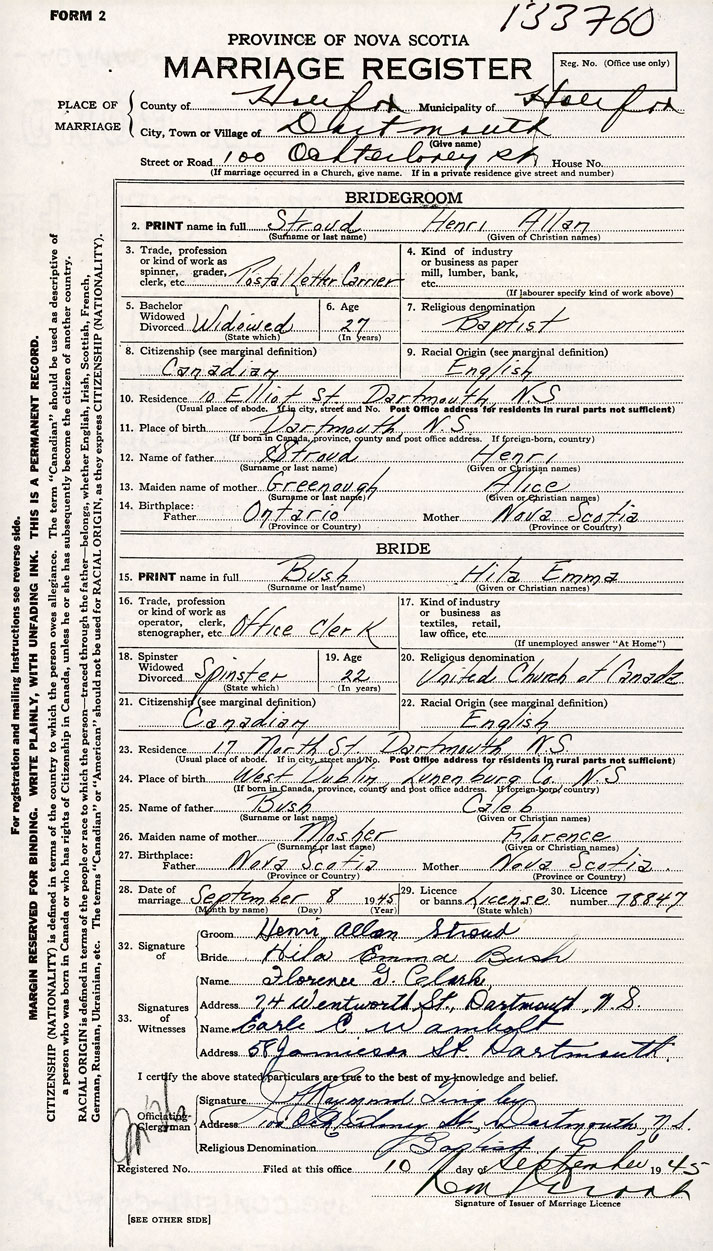 FORM 2
133760
PROVINCE OF NOVA SCOTIA
MARRIAGE REGISTER
Reg. No. (Office use only)
PLACE OF MARRIAGE
County of Halifax Municipality of Halifax
City, Town or Village of Dartmouth
(Give name)
Street or Road 100 Ochterloney St House No.
(If marriage occurred in a Church, give name. If in a private residence give street and number)
BRIDEGROOM
2. PRINT name in full Stroud Henri Allan
(Surname or last name) (Given or Christian names)
3. Trade, profession or kind of work as spinner, grader, clerk, etc. Postal Letter Carrier
4. Kind of industry or business as paper mill, lumber, bank, etc.
(If labourer specify kind of work above)
5. Bachelor Widowed Divorced Widowed
(State which)
6. Age 27
(In years)
7. Religious denomination
Baptist
8. Citizenship (see marginal definition)
Canadian
9. Racial Origin (see marginal definition)
English
10. Residence 10 Elliot St. Dartmouth N.S
(Usual place of abode. If in city, street and No. Post Office address for residents in rural parts not sufficient)
11. Place of birth Dartmouth N.S
(If born in Canada, province, county and post office address. If foreign-born, country)
12. Name of father Stroud Henri
(Surname or last name) (Given or Christian names)
13. Maiden name of mother Greenough Alice
(Surname or last name) (Given or Christian names)
14. Birthplace: Father Ontario Mother Nova Scotia
(Province or Country) (Province or Country)
BRIDE
15. PRINT name in full Bush Hila Emma
(Surname or last name) (Given or Christian names)
16. Trade, profession or kind of work as operator, clerk, stenographer, etc. Office Clerk
17. Kind of industry or business as textiles, retail, law office, etc.
(If unemployed answer "At Home")
18. Spinster Widowed Divorced Spinster
(State which)
19. Age 22
(In years)
20. Religious denomination
United Church of Canada
21. Citizenship (see marginal definition)
Canadian
22. Racial Origin (see marginal definition)
English
23. Residence 17 North St. Dartmouth N.S.
(Usual place of abode. If in city, street and No. Post Office address for residents in rural parts not sufficient)
24. Place of birth West Dublin, Lunenburg Co. N.S
(If born in Canada, province, county and post office address. If foreign-born, country)
25. Name of father Bush Caleb
(Surname or last name) (Given or Christian names)
26. Maiden name of mother Mosher Florence
(Surname or last name) (Given or Christian names)
27. Birthplace: Father Nova Scotia Mother Nova Scotia.
(Province or Country) (Province or Country)
28. Date of marriage September 8 1945
(Month by name) (Day) (Year)
29. Licence or banns License
(State which)
30. Licence number 78847
32. Signature of
Groom Henri Allan Stroud
Bride Hila Emma Bush
33. Signatures of Witnesses
Name Florence G. Clark
Address 74 Wentworth St., Dartmouth, N.S.
Name Earle C.
Address 58 Jamieson St. Dartmouth.
I certify the above stated particulars are true to the best of my knowledge and belief.
Officiating Clergyman
Signature J. Raymond Tingley
Address 100 Ochterloney St. Dartmouth, N.S.
Religious Denomination Baptist
Registered No. Filed at this office 10 day of September 1945
Signature of Issuer of Marriage Licence
[SEE OTHER SIDE]
For registration and mailing instructions see reverse side.
MARGIN RESERVED FOR BINDING. WRITE PLAINLY, WITH UNFADING INK. THIS IS A PERMANENT RECORD.
CITIZENSHIP (NATIONALITY) is defined in terms of the country to which the person owes allegiance. The term "Canadian" should be used as descriptive of
a person who was born in Canada or who has rights of Citizenship in Canada, unless he or she has subsequently become the citizen of another country.
RACIAL ORIGIN is defined in terms of the people or race to which the person—traced through the father—belongs, whether English, Irish, Scottish, French,
German, Russian, Ukrainian, etc. The terms "Canadian" or "American" should not be used for RACIAL ORIGIN, as they express CITIZENSHIP (NATIONALITY).